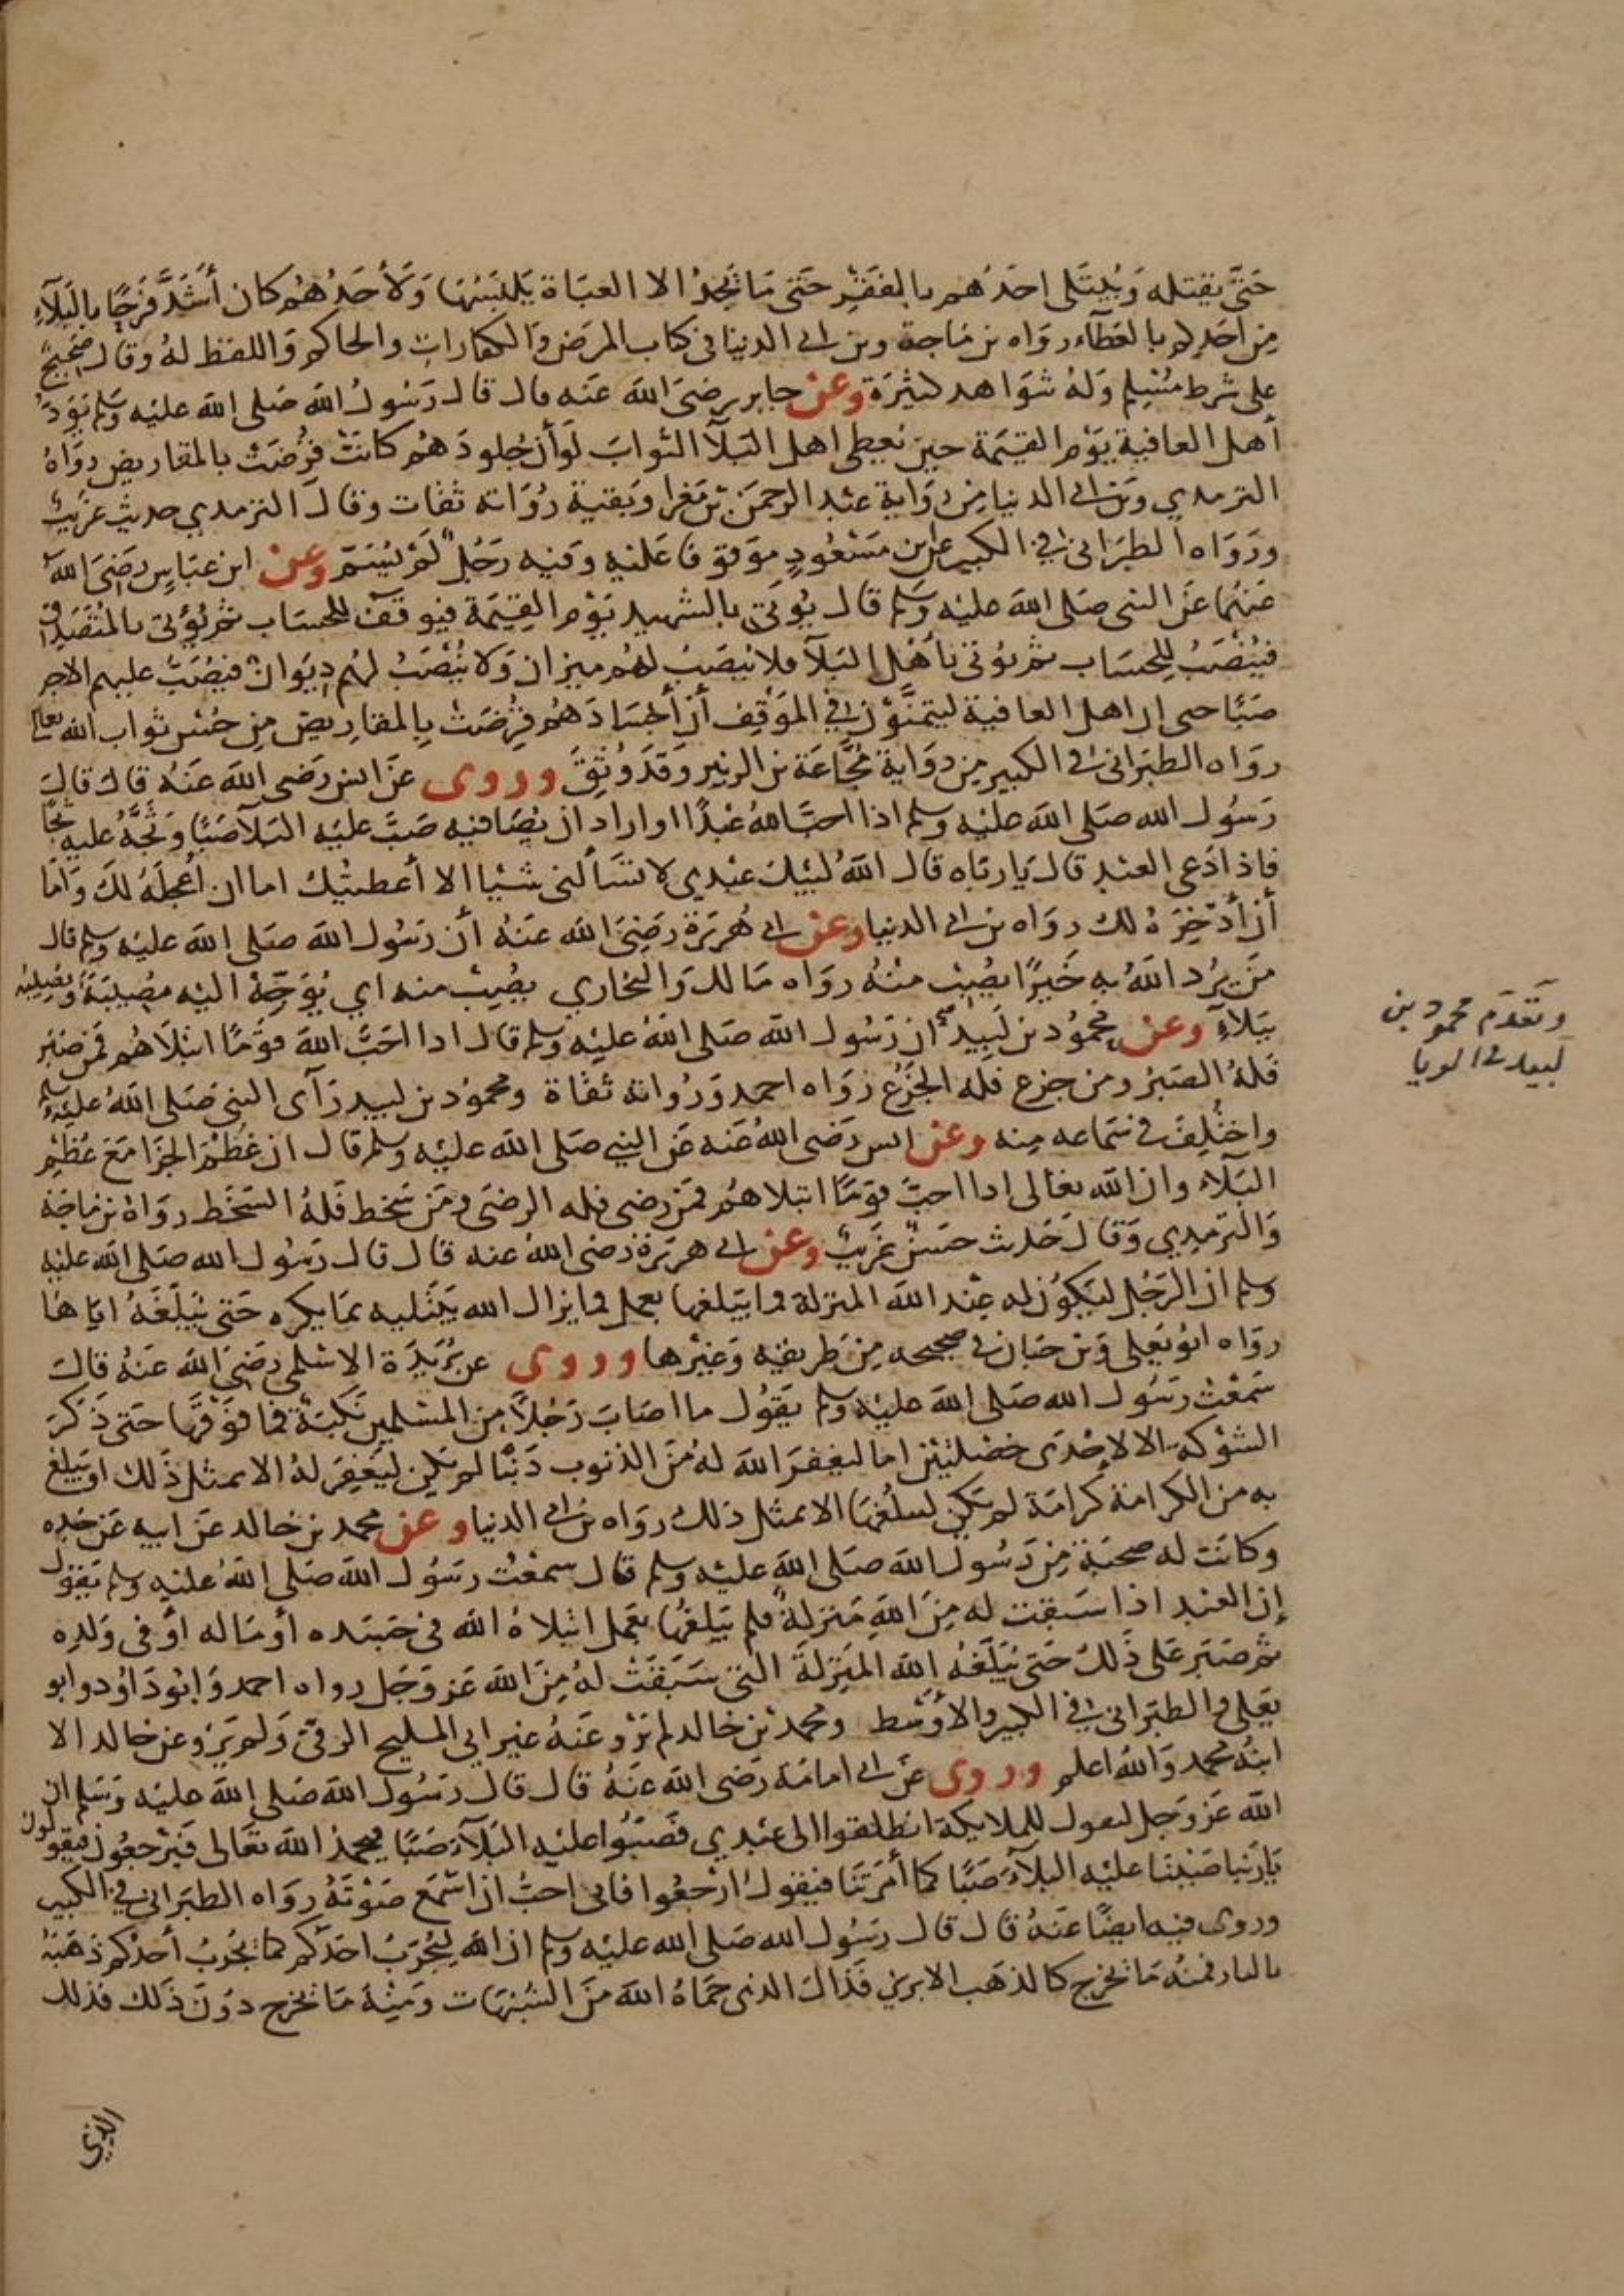 حَتَّى يقتله وَيُبتَلى احَدُهُم بالفَقْرِ حَتى مَا يَجِدُ الا العبَاة يَلبَسُهَا وَلأحَدُهُم كان أشَدَّ فَرَحًا بالبَلآءِ
مِن احَدِكم بالعَطآء رواه بن مَاجة وبن ابي الدنيا في كتاب المرَض والكفارات والحاكم وَاللفظ لهُ وقال صَحِيحٌ
على شرط مُسْلِم وَلهُ شوَاهد كثيرَة وعن جابر رضىَ الله عَنه قال قال رَسُولُ الله صَلى الله عليْه وَسَلم يَوَدُّ
أهل العافية يَوْم القِيَمَة حين يُعطى اهل البَلآ الثوابَ لوَأن جُلودَهُم كانَتْ قُرضَتْ بالمقاريض رَوَاهُ
الترمدي وبن ابي الدنيا مِن رِوَاية عَبْد الرحمَن بْن مَغرا وَبَقيَة رُوَاته ثقات وقالَ الترمدي حديث غَرِيبٌ
ورَوَاه الطبَرَاني في الكبير عن ابن مَسْعُودٍ مَوقوفا عَليْهِ وَفيه رَجُلٌ لَمْ يُسَمّ وعن ابن عَبَاسٍ رَضِىَ اللهُ
عَنهُمَا عَن النبي صَلى الله عليْه وَسَلم قال يُوتَى بالشهيد يَوْم القِيَمَة فيوقَفُ للحسَاب ثم يُؤتى بالمُتصَدِقِ
فيُنْصَبُ لِلحِسَاب ثم يوتى بأهْل البَلآ فلا ينصَبُ لهُم ميزان وَلا يُنْصَبُ لهُم دِيوَانٌ فيُصَبُّ عليهم الاجر
صَبًا حتى ان اهل العافية ليتمَنَّوْن في المَوْقِف أن أجسَادَهُم قُرضَتْ بِالمقارِيض مِن حُسْن ثواب الله تعالى
رواه الطبَرَاني في الكبير مِن رِوَاية مُجَّاعَة بن الزبير وَقَدْ وُثِقَ وروى عَن انس رَضى الله عَنهُ قال قالَ
رَسُول الله صَلى الله عليْه وسلم اذا احبَّ اللهُ عَبْدًا او اراد ان يُصَافيه صَبَّ عليْه البَلآ صَبًا وَثَجَّهُ عليه ثجًا
فاذا دَعى العبْد قالَ يَا ربَاه قال اللهُ لبيْك عَبْدي لا تسَألني شيْا الا أعطيْتك اما ان اُعجِلَهُ لكَ وَامَا
أن أدَّخِرَهُ لك رواه بن ابي الدنيا وعن ابي هُرَيرَة رَضِىَ الله عَنهُ أن رَسُول الله صَلى الله عليْه وسلم قال
مَن يُرِد اللهُ بِهِ خَيرًا يُصِبْ منهُ رواه مَالك وَالبُخاري يُصِبْ منه اي يُوَجِّهْ اليْه مُصِيبَة وَيُصِيبُه
بَبَلآءٍ وعن مَحمُود بن لَبِيد ان رَسُول الله صَلى اللهُ عليْه وسلم قال ادا احَبَّ اللهَ قَوْمًا ابْتَلاهُم فَمَن صَبَر
فَلهُ الصَبْرُ ومن جزع فله الجَزَعُ رَوَاه احمد وَرُواته ثقاة ومحمُود بن لبيد رَآى النبي صَلى اللهُ عليْه وسلم
واختُلِفَ في سَمَاعه مِنه وعن انس رَضى اللهُ عَنه عَن النبي صَلى الله عليْه وسلم قال ان عُظْمَ الجَزا مَعَ عُظْم
البَلآء وان الله تعَالى ادا احبَّ قوَمًا ابتلاهُم فمَن رَضى فله الرضَى وَمَن سَخط فَلهُ السَخَط رَوَاهُ بن مَاجَهْ
وَالترمدي وَقالَ حَدِيث حَسَنٌ غَرِيبٌ وعن ابي هريَرَة رَضى اللهُ عنه قال قال رَسُول الله صَلى الله عليْه
وسلم ان الرَجُل ليَكوُن له عِنْد الله المنزلة فما يَبلغها بعمل فما يزال الله يَبْتَليه بمَا يكره حَتى يُبَلّغَهُ ايَاها
رواه ابُو يَعلى وَبن حبَان في صحيحه مِن طَرِيقه وَغيْرها وروى عن بُرَيدَة الاسْلمى رَضِىَ الله عَنهُ قال
سَمعْتُ رسُول الله صَلى الله عليْه وسلم يَقوُل ما اصَابَ رَجُلاً مِن المسْلمين نَكبَة فما فَوْقهَا حتى ذَكَرَ
الشوْكة الا لاِحْدَى خصْلتَيْن اما ليَغفرَ الله لهُ مَن الذنوب دَنْبًا لم يَكن ليَغفِرَ لهُ الا بمثل ذَلك او يَبلغ
به من الكرامَة كرَامَة لم يَكن ليبلُغهَا الا بمثل ذلك رواه بن ابي الدنيا وعن محمد بن خالد عَن ابيه عَن جَدِه
وكانَت له صحبَة مِن رَسُول الله صَلى الله عليْه وسلم قال سمعْتُ رسَوُل الله صَلى اللهُ عليْه وسلم يَقوُل
إن العَبْد اذا سَبَقت له مِنَ اللهِ مَنزلةٌ فلم يَبلغْهَا بعَمل ابْتلاهُ الله في جَسَده أو مَاله أوْ في وَلدِه
ثم صَبَر عَلى ذَلكَ حَتى يُبَلّغَهُ الله المنزِلةَ التي سَبَقَتْ لهُ مِنَ الله عَز وَجَل رواه احمد وَابُو دَاوُد وابو
يَعلى والطبَراني في الكبير والأوْسَط ومحمد بْن خالد لم يَرْو عَنهُ غير ابي المليح الرقيّ وَلم يَرْو عن خالد الا
ابنُهُ محمد وَاللهُ اعلم وروى عَن ابي امَامَة رَضى الله عَنهُ قال قال رَسُول الله صَلى الله عليْه وَسَلم ان
الله عَز وَجل ليقول للملايكة انطلقوا الى عَبْدي فَصَبُّوا عليْه البَلآ صَبًا فيحمدُ الله تعَالى فَيرْجعُون فيقولون
يَا رَبنا صَبَبْنَا عليْه البلآءَ صَبًا كما أمَرتَنا فيقولُ ارْجعُوا فاني اُحبُّ ان اَسْمَع صَوْتَهُ رواه الطبَراني في الكبير
وروى فيه ايضًا عَنهُ قال قال رسَوُل الله صَلى الله عليْه وسلم ان الله ليُجَرّبُ احَدَكم كما يُجَربُ أحَدُكم ذهَبَهُ
بالنار فمنهُ مَا يَخرج كالذهَب الابريز فَذاك الذي حَمَاهُ الله مَنَ الشبُهات وَمِنهُ مَا يَخرج دوُنَ ذَلك فذلك
الذي
وَتقدَم محمود بن
لبيد في الريا